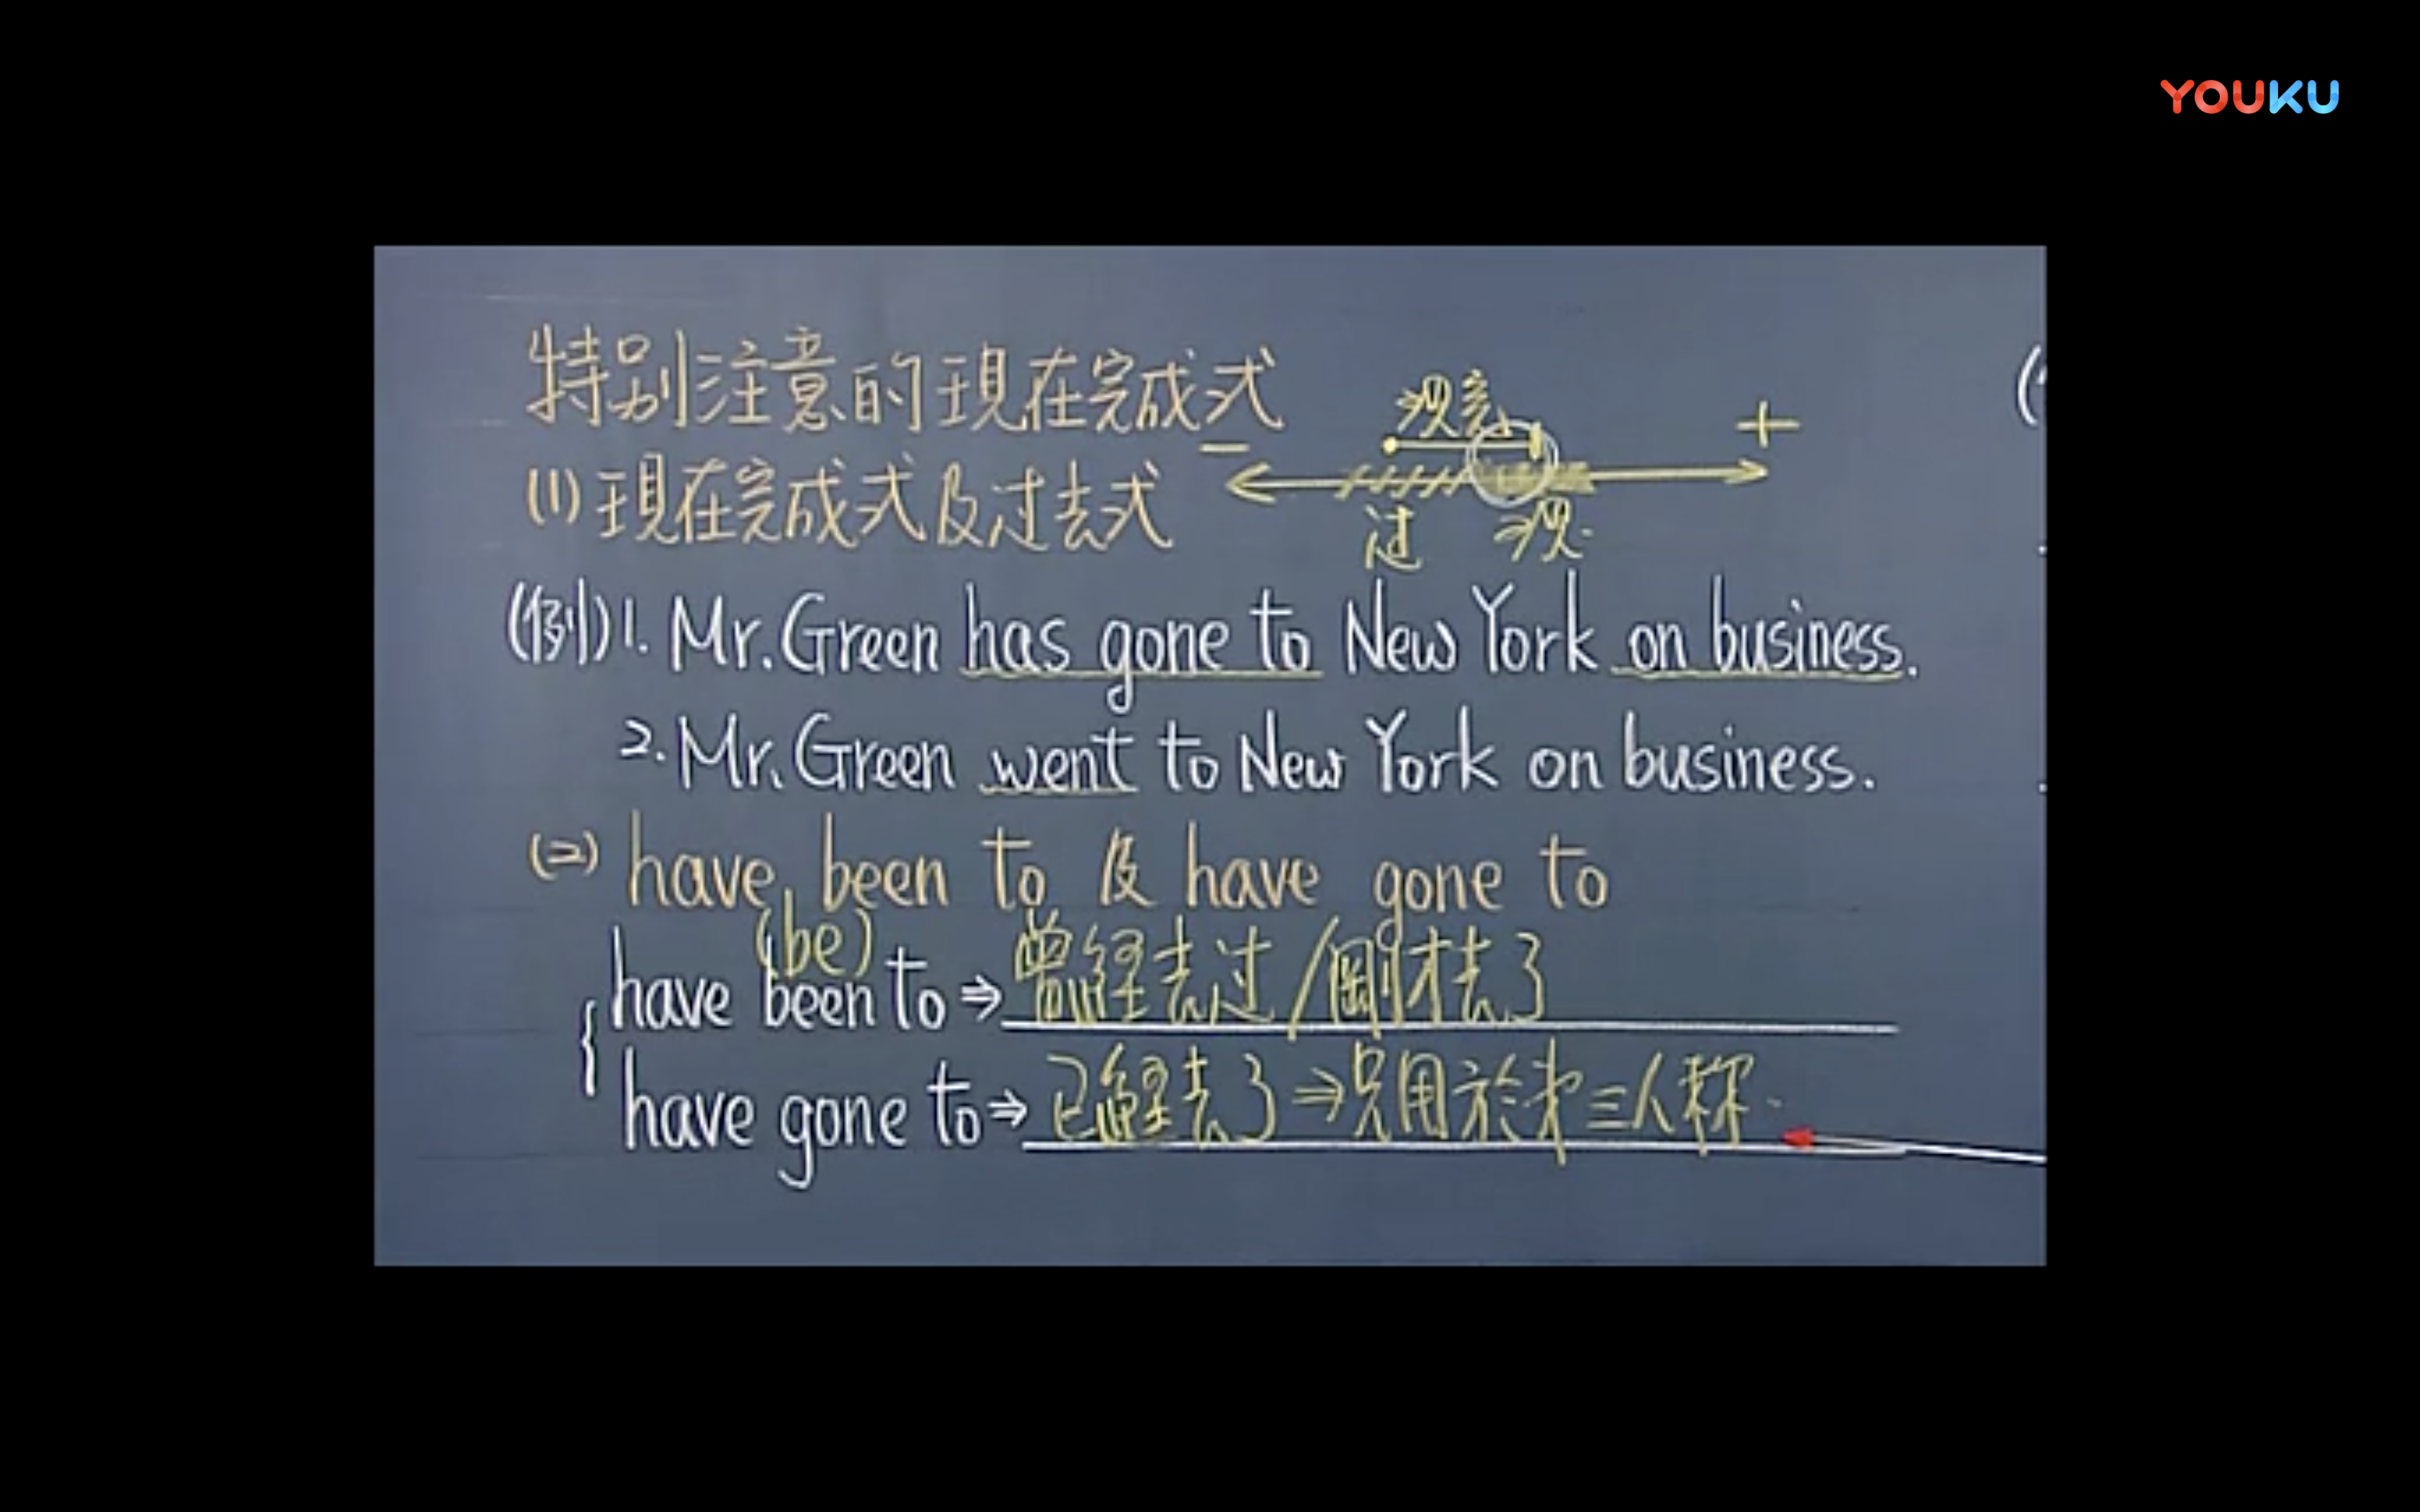 YOUKU
特别注意的現在完成式
現完
－ ＋
(1)現在完成式及过去式
过 現.
(例)1. Mr. Green has gone to New York on business.
2. Mr. Green went to New York on business.
(=) have been to 及 have gone to
(be)
have been to ⇒ 曾經去过/剛才去了
have gone to ⇒ 已經去了⇒只用於才三人称.